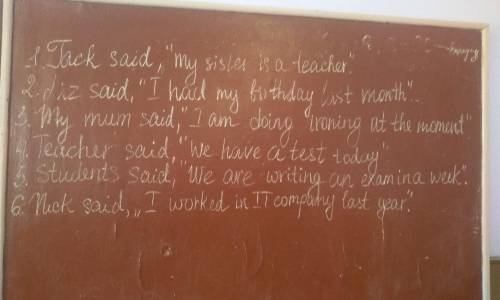 1. Jack said, "My sister is a teacher".
2. Liz said, "I had my birthday last month".
3. My mum said, "I am doing ironing at the moment"
4. Teacher said, "We have a test today"
5. Students said, "We are writing an exam in a week".
6. Nick said, "I worked in IT company last year".